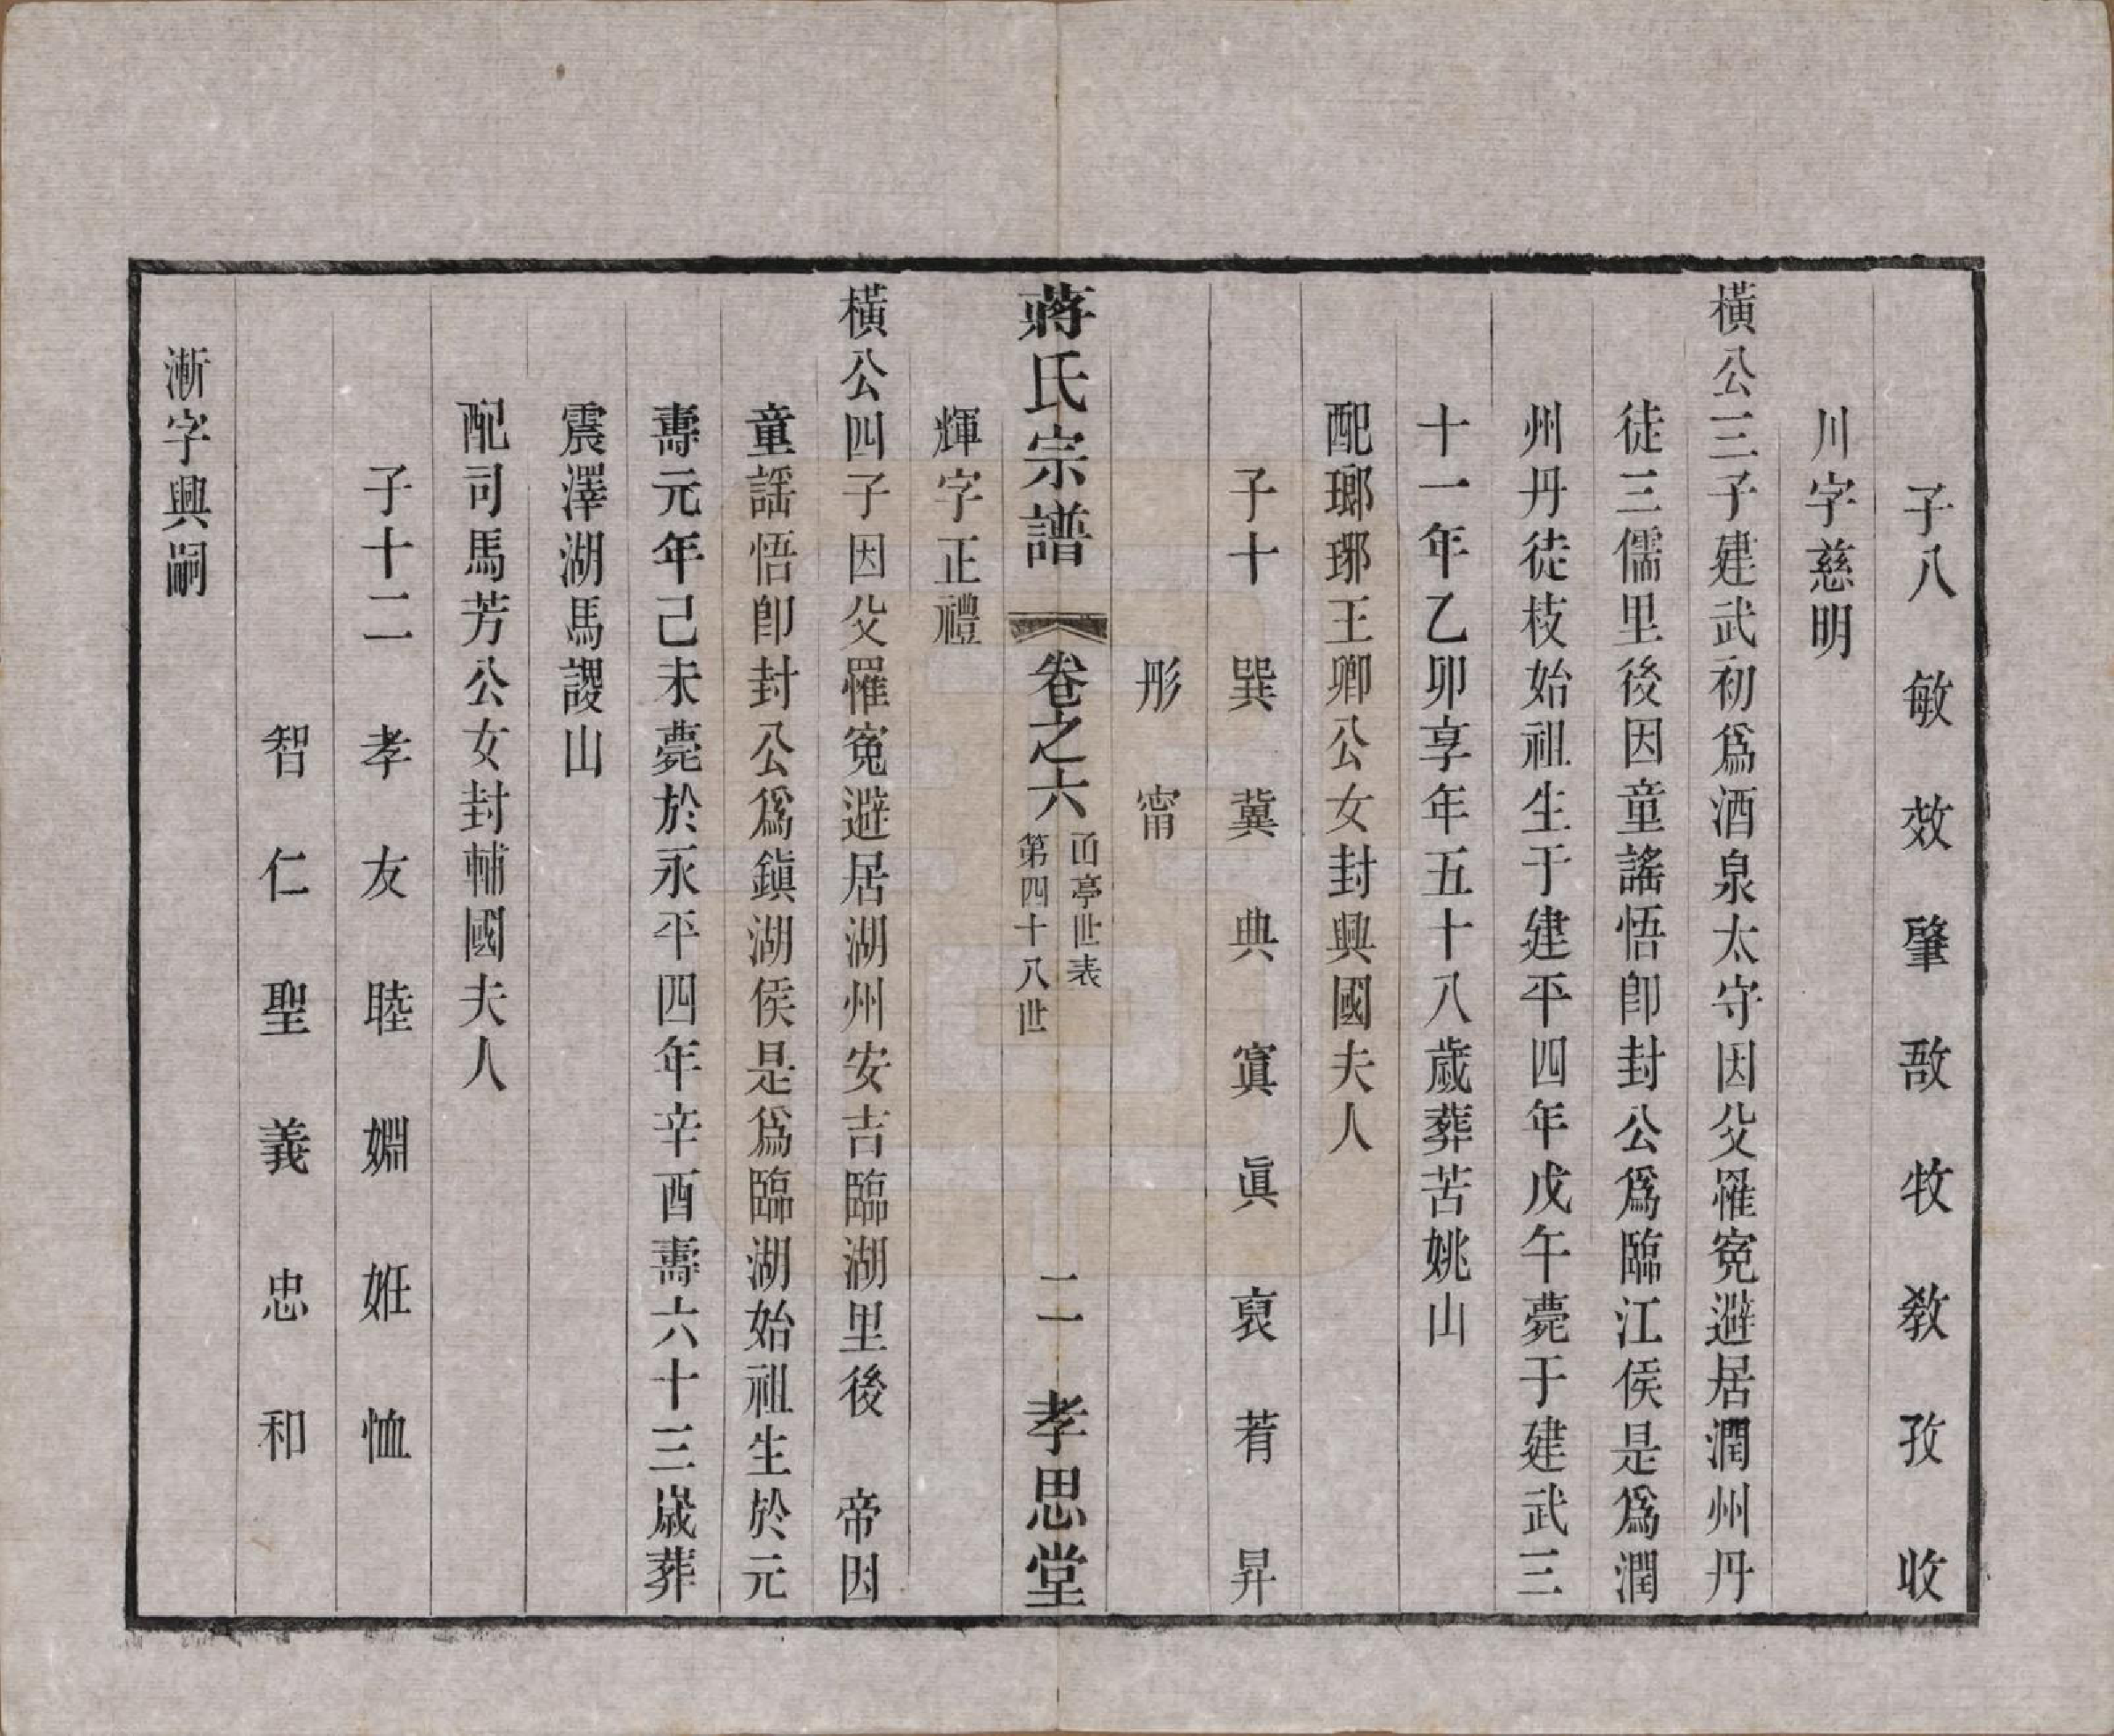 子八　敏　效　肇　敔　牧　教　孜　收
川字慈明
橫公三子建武初爲酒泉太守因父罹寃避居潤州丹
徒三儒里後因童謠悟卽封公爲臨江侯是爲潤
州丹徒枝始祖生于建平四年戊午薨于建武三
十一年乙卯享年五十八歲葬苦姚山
配瑯琊王卿公女封興國夫人
子十　巽　冀　典　寘　眞　裒　着　昇
彤　甯
蔣氏宗譜　卷之六　函亭世表　第四十八世　二　孝思堂
輝字正禮
橫公四子因父罹寃避居湖州安吉臨湖里後　帝因
童謡悟卽封公爲鎭湖侯是爲臨湖始祖生於元
壽元年己未薨於永平四年辛酉壽六十三歲葬
震澤湖馬謖山
配司馬芳公女封輔國夫人
子十二　孝　友　睦　婣　姙　恤
智　仁　聖　義　忠　和
漸字興嗣